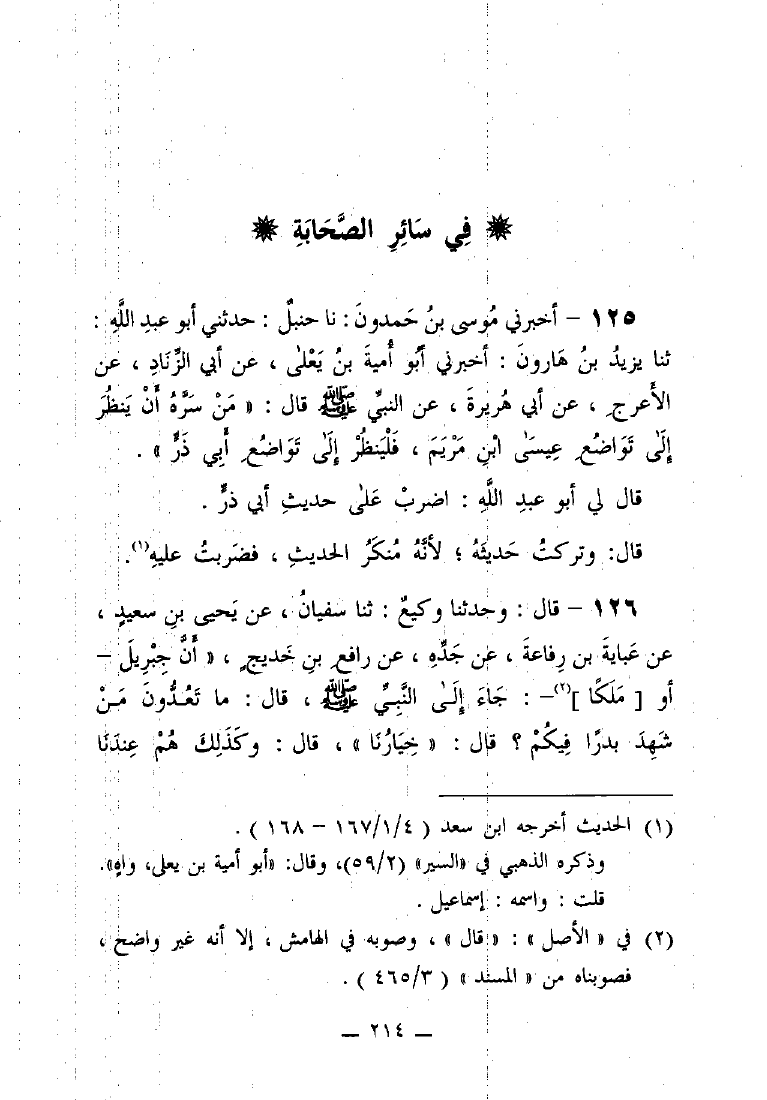 ❋ فِي سَائِرِ الصَّحَابَةِ ❋
١٢٥ – أخبرني مُوسى بنُ حَمدونَ : نا حنبلٌ : حدثني أبو عبدِ اللَّهِ :
ثنا يزيدُ بنُ هَارونَ : أخبرني أَبُو أُميةَ بنُ يَعْلى ، عن أبي الزِّنَادِ ، عن
الأَعرجِ ، عن أبي هُريرةَ ، عن النبيِّ ﷺ قال : « مَنْ سَرَّهُ أَنْ يَنظُرَ
إِلَى تَوَاضُعِ عِيسَى ابْنِ مَرْيَمَ ، فَلْيَنظُرْ إِلَى تَوَاضُعِ أَبِي ذَرٍّ » .
قال لي أبو عبدِ اللَّهِ : اضربْ عَلى حديثِ أبي ذرٍّ .
قال: وتركتُ حَديثَهُ ؛ لأنَّهُ مُنكَرُ الحديثِ ، فضَربتُ عليهِ(١).
١٢٦ – قال : وحدثنا وكيعٌ : ثنا سفيانُ ، عن يَحيى بنِ سعيدٍ ،
عن عَبايةَ بن رِفاعةَ ، عن جَدِّهِ ، عن رافعِ بنِ خَديجٍ ، « أَنَّ جِبْرِيلَ –
أو [ مَلَكًا ](٢)– : جَاءَ إِلَى النَّبِيِّ ﷺ ، قال : ما تَعُدُّونَ مَنْ
شَهِدَ بدرًا فِيكُمْ ؟ قال : « خِيَارُنَا » ، قال : وكَذَلِكَ هُمْ عِندَنَا
(١) الحديث أخرجه ابن سعد ( ٤/١/١٦٧ – ١٦٨ ) .
وذكره الذهبي في «السير» (٥٩/٢)، وقال: «أبو أمية بن يعلى، واهٍ».
قلت : واسمه : إسماعيل .
(٢) في « الأصل » : « قال » ، وصوبه في الهامش ، إلا أنه غير واضح ،
فصوبناه من « المسند » ( ٤٦٥/٣ ) .
— ٢١٤ —